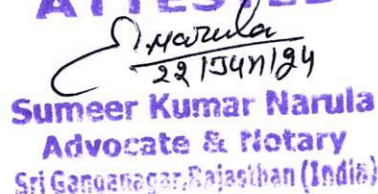 ATTESTED
S.Narula
22/Jun/24
Sumeer Kumar Narula
Advocate & Notary
Sri Ganganagar,Rajasthan (India)